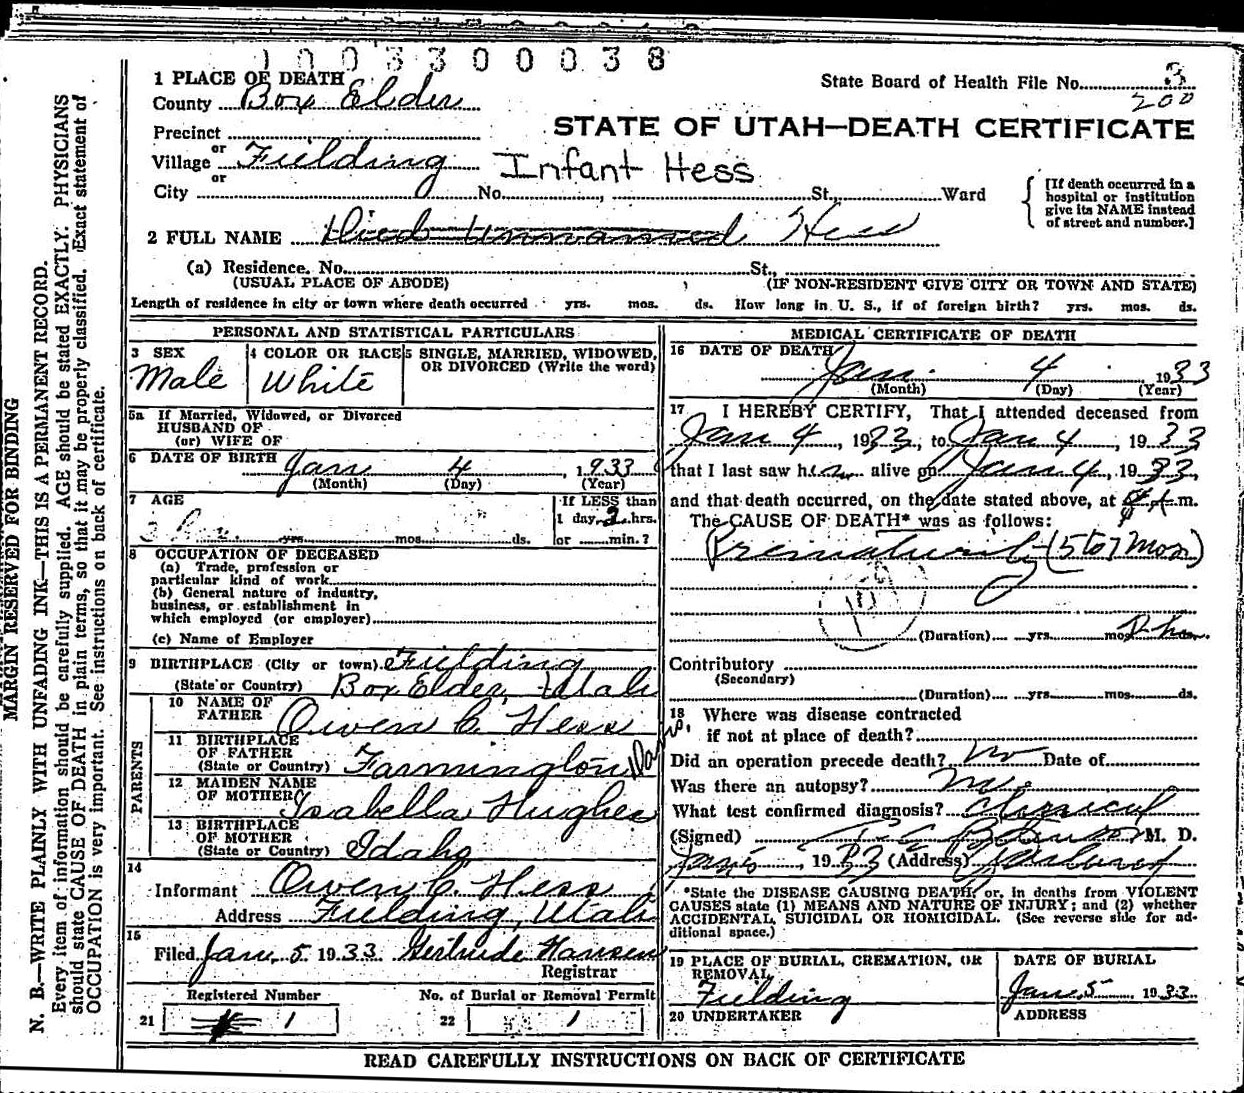 1003300038
1 PLACE OF DEATH
State Board of Health File No. 3
200
County Box Elder
STATE OF UTAH—DEATH CERTIFICATE
Precinct
or
Village Fielding
Infant Hess
or
City No. , St. Ward
[If death occurred in a
hospital or institution
give its NAME instead
of street and number.]
2 FULL NAME Died Unnamed Hess
(a) Residence. No. St.,
(USUAL PLACE OF ABODE) (IF NON-RESIDENT GIVE CITY OR TOWN AND STATE)
Length of residence in city or town where death occurred yrs. mos. ds. How long in U. S., if of foreign birth? yrs. mos. ds.
PERSONAL AND STATISTICAL PARTICULARS
3 SEX
Male
4 COLOR OR RACE
White
5 SINGLE, MARRIED, WIDOWED,
OR DIVORCED (Write the word)
5a If Married, Widowed, or Divorced
HUSBAND OF
(or) WIFE OF
6 DATE OF BIRTH Jan 4, 1933
(Month) (Day) (Year)
7 AGE
yrs. mos. ds.
If LESS than
1 day, 2 hrs.
or min.?
8 OCCUPATION OF DECEASED
(a) Trade, profession or
particular kind of work
(b) General nature of industry,
business, or establishment in
which employed (or employer)
(c) Name of Employer
9 BIRTHPLACE (City or town) Fielding
(State or Country) Box Elder, Utah
PARENTS
10 NAME OF
FATHER Owen C. Hess
11 BIRTHPLACE
OF FATHER
(State or Country) Farmington
12 MAIDEN NAME
OF MOTHER Isabella Hughes
13 BIRTHPLACE
OF MOTHER
(State or Country) Idaho
14
Informant Owen C. Hess
Address Fielding, Utah
15
Filed Jan. 5 1933 Gertrude Hansen
Registrar
Registered Number No. of Burial or Removal Permit
21 1 22 1
MEDICAL CERTIFICATE OF DEATH
16 DATE OF DEATH
Jan. 4 1933
(Month) (Day) (Year)
17 I HEREBY CERTIFY, That I attended deceased from
Jan 4, 1933, to Jan 4, 1933
that I last saw him alive on Jan 4, 1933,
and that death occurred, on the date stated above, at m.
The CAUSE OF DEATH* was as follows:
Prematurity (5 to 7 mos)
(Duration) yrs. mos. 2 hrs.
Contributory
(Secondary)
(Duration) yrs. mos. ds.
18 Where was disease contracted
if not at place of death?
Did an operation precede death? no Date of
Was there an autopsy? no
What test confirmed diagnosis? clinical
(Signed) M. D.
Jan 5, 1933 (Address)
*State the DISEASE CAUSING DEATH, or, in deaths from VIOLENT
CAUSES state (1) MEANS AND NATURE OF INJURY; and (2) whether
ACCIDENTAL, SUICIDAL OR HOMICIDAL. (See reverse side for ad-
ditional space.)
19 PLACE OF BURIAL, CREMATION, OR
REMOVAL
Fielding
DATE OF BURIAL
Jan. 5 1933
20 UNDERTAKER
ADDRESS
READ CAREFULLY INSTRUCTIONS ON BACK OF CERTIFICATE
MARGIN RESERVED FOR BINDING
N. B.—WRITE PLAINLY WITH UNFADING INK—THIS IS A PERMANENT RECORD.
Every item of information should be carefully supplied. AGE should be stated EXACTLY. PHYSICIANS
should state CAUSE OF DEATH in plain terms, so that it may be properly classified. Exact statement of
OCCUPATION is very important. See instructions on back of certificate.